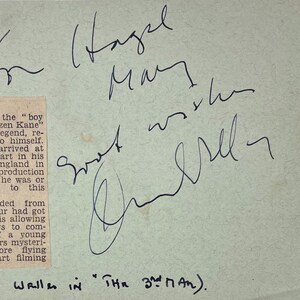 For Hazel
Mary
Good wishes
the "boy
zen Kane"
egend, re-
o himself.
arrived at
art in his
England in
production
he was or
to this
ded from
ur had got
is allowing
ys to com-
of a young
rs mysteri-
ore flying
art filming
Welles in "THE 3RD MAN).